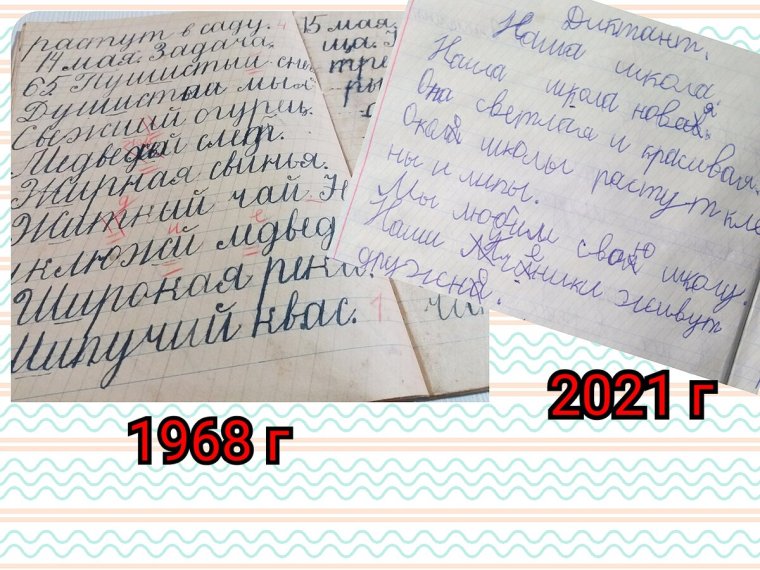 растут в саду. 4
14 мая. Задача.
65 Пушистый сне
Душистый мы
Свежий огурец.
Медвежий след.
Жирная свинья.
Жидкий чай. Н
уклюжий медвед
Широкая река.
Шипучий квас. 1
15 мая.
ща.
тре
ры
Диктант.
Наша школа.
Наша школа новая.
Она светлая и красивая.
Около школы растут кле
ны и липы.
Мы любим свою школу.
Наши ученики живут
дружно.
1968 г
2021 г